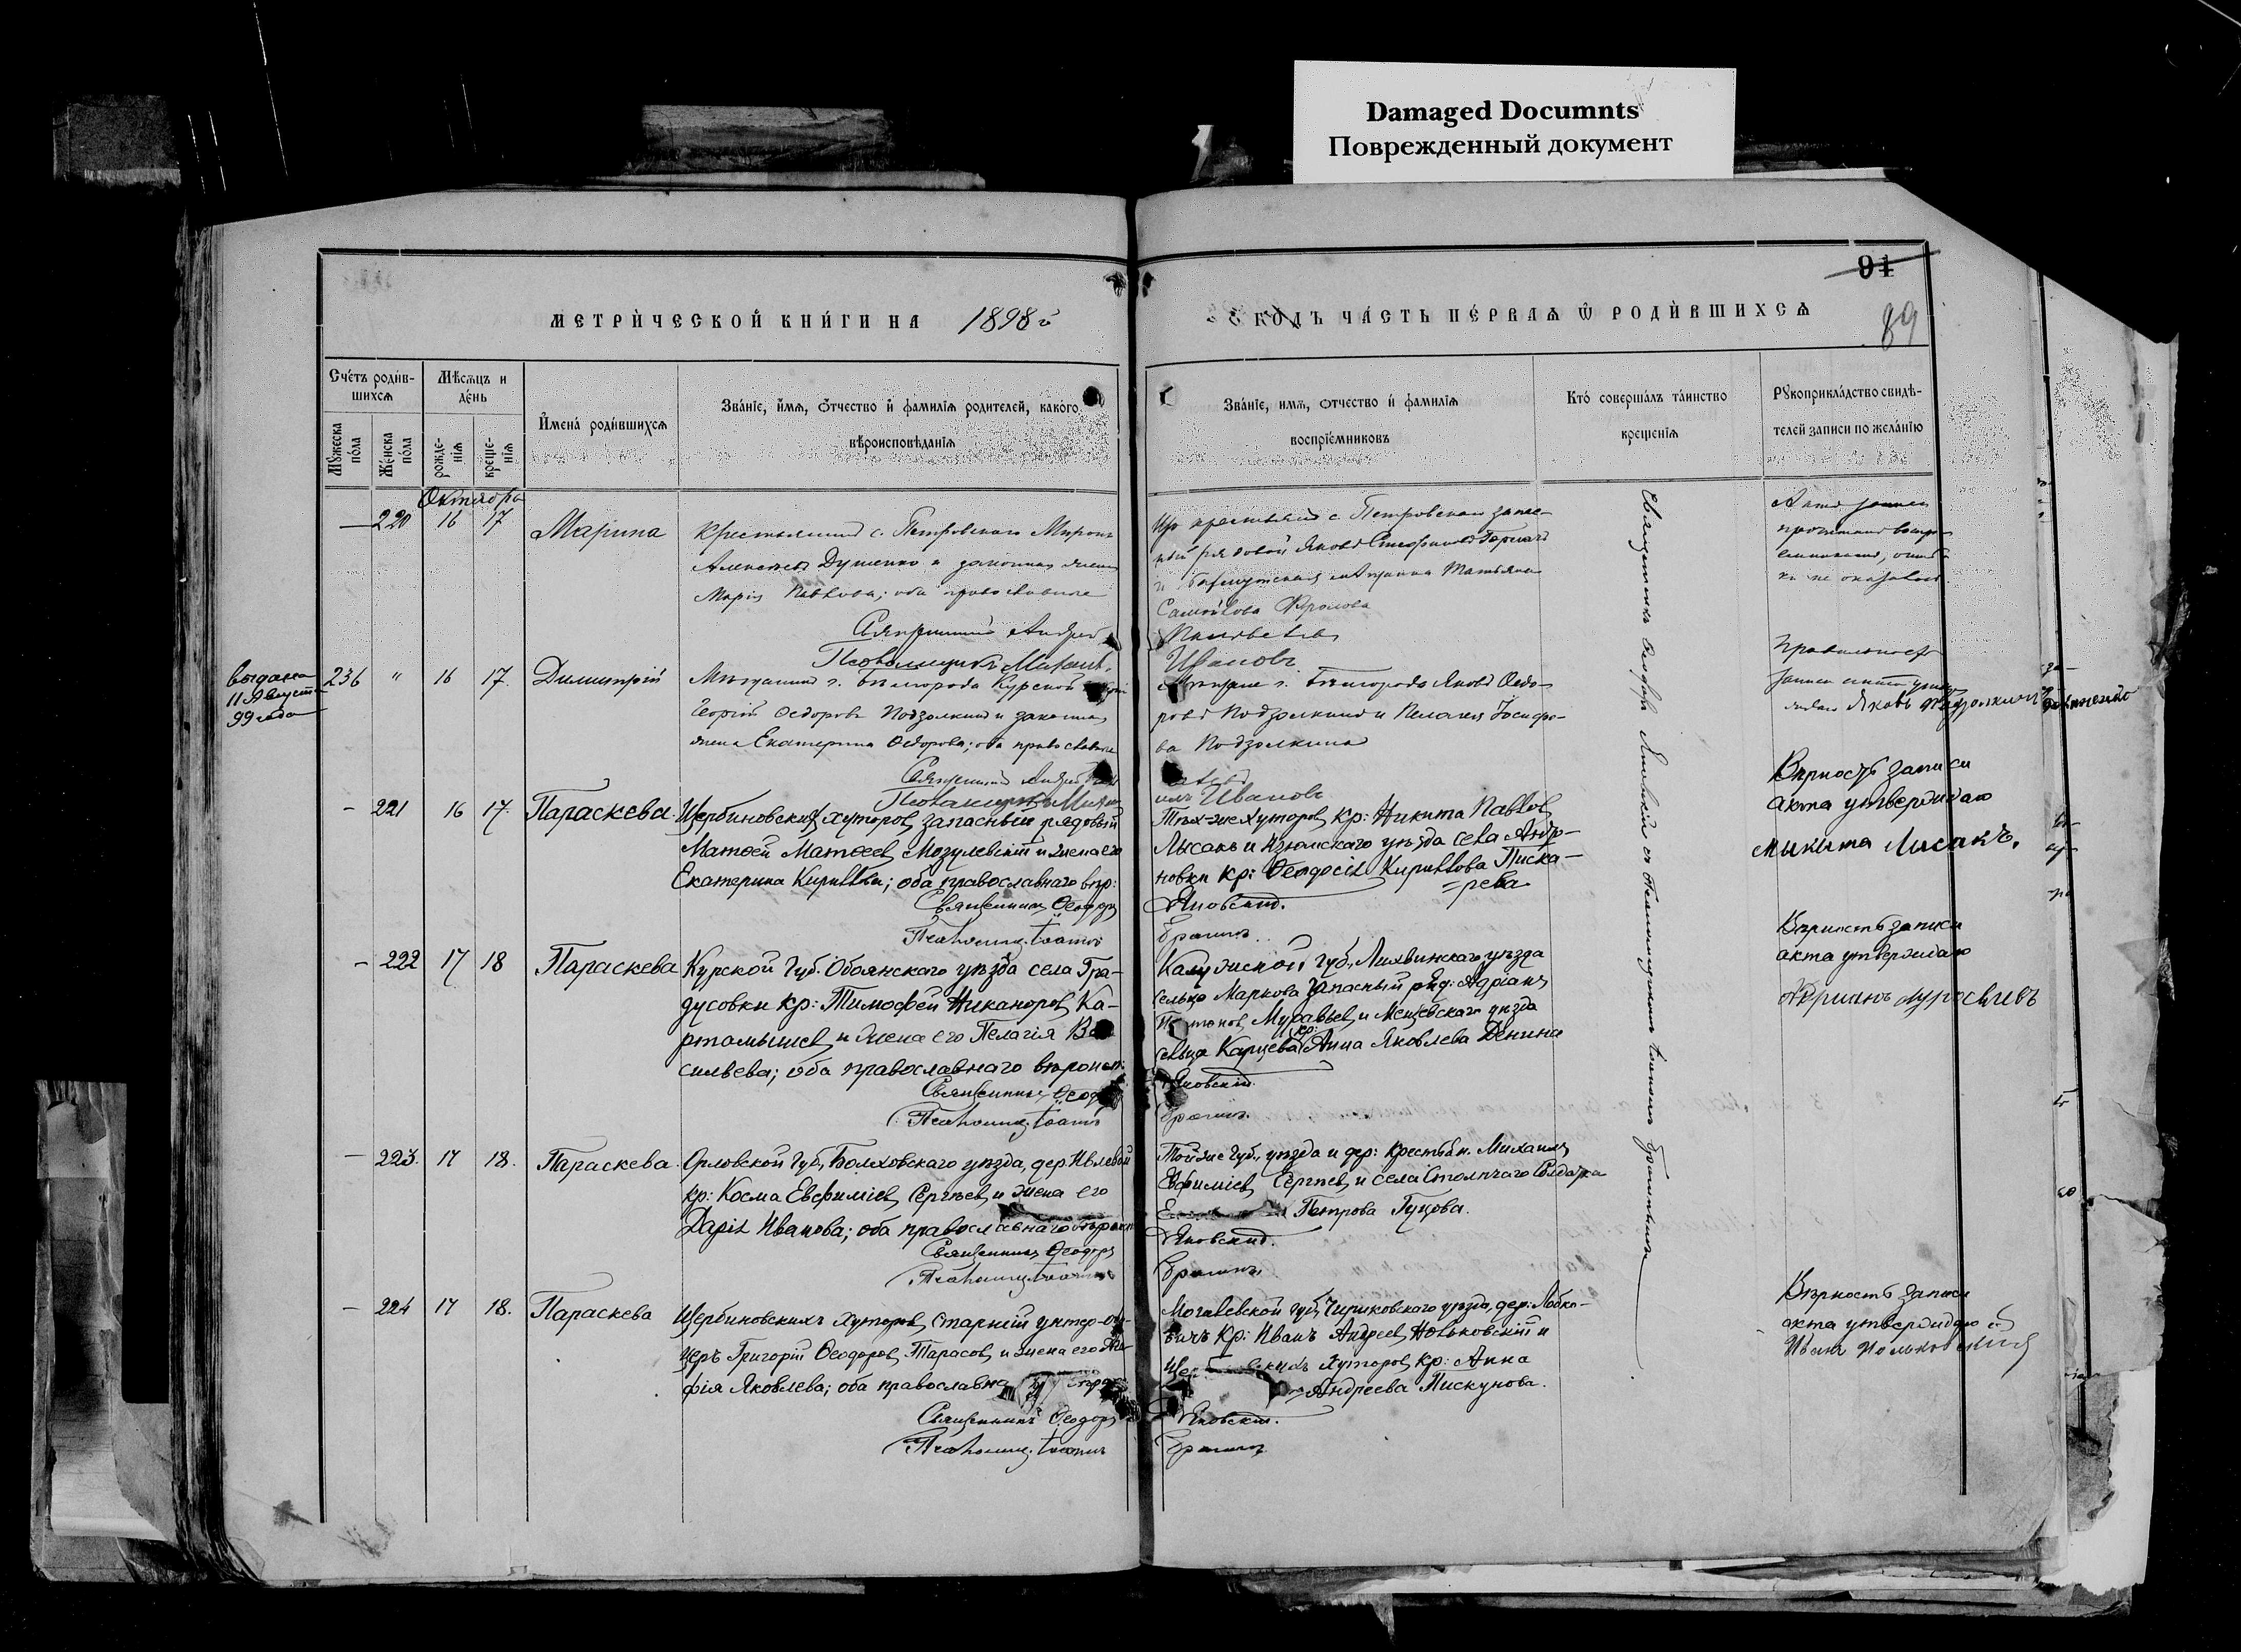 Damaged Documnts
Поврежденный документ
94
89
МЕТРИ́ЧЕСКОЙ КНИ́ГИ НА 1898 й
ГО́ДЪ ЧА́СТЬ ПЕ́РВАѦ Ѿ РОДИ́ВШИХСѦ
Сче́тъ роди́в-
шихсѧ
Мѣ́сѧцъ и
де́нь
Мꙋ́жеска
по́ла
Же́нска
по́ла
рожде́-
нїѧ
креще́-
нїѧ
И҆мена̀ роди́вшихсѧ
Зва́нїе, и҆́мѧ, ѻ҆́тчество и҆ фами́лїѧ роди́телей, како́гѡ
вѣроисповѣ́данїѧ
Зва́нїе, имѧ, ѻтчество и҆ фами́лїѧ
воспрїе́мниковъ
Кто̀ соверша́лъ та́инство
креще́нїѧ
Рꙋкоприкла́дство свидѣ́-
телей записи по жела́нїю
Октября
— 220 16 17 Марина
Крестьянинъ с. Петровскаго Миронъ
Алексѣевъ Душенко и законная жена
Марія Павлова; оба православные
Священникъ Андрей
Псаломщикъ Михаилъ
крестьянинъ с. Петровскаго запас-
ный рядовой Яковъ
и Бахмутская мѣщанка Татьяна
Самойлова Фролова
Ивановъ
Актъ записи
не оказалось.
выдана
11 Августа
99 года
236 " 16 17. Димитрій
Мѣщанинъ г. Бѣлгорода Курской
Георгій Ѳедоровъ Подзолкинъ и законная
жена Екатерина Ѳедорова; оба православные
Священникъ Андрей
Псаломщикъ Миха
мѣщане г. Бѣлгорода Яковъ Ѳедо-
ровъ Подзолкинъ и Пелагея Іосифо-
ва Подзолкина
илъ Ивановъ
Правильность
записи
Яковъ
- 221 16 17. Параскева
Щербиновскихъ хуторовъ запасный рядовый
Матѳей Матѳеевъ Мозулевскій и жена его
Екатерина Кириллова; оба православнаго вѣр:
Священникъ Ѳеодоръ
Псаломщ. Іоаннъ
Тѣхъ-же хуторовъ кр: Никита Павловъ
Лысакъ и Изюмскаго уѣзда села Андр-
новки кр: Ѳеодосія Кириллова Писка-
=рева
Яновскій.
Брагинъ.
Вѣрность записи
акта утверждаю
Микита Лисакъ.
- 222 17 18 Параскева
Курской Губ. Обоянскаго уѣзда села Гра-
дусовки кр: Тимофей Никаноровъ Ка-
ртамышевъ и жена его Пелагія Ва
сильева; оба православнаго вѣроисп:
Священникъ Ѳеод
Псаломщ. Іоаннъ
Калужской Губ. Лихвинскаго уѣзда
сельца Маркова запасный ряд: Адріанъ
Муравьевъ и Мещевскаго уѣзда
сельца Карцева кр: Анна Яковлева Денина
Яновскій.
Брагинъ.
Вѣрность записи
акта утверждаю
— 223. 17 18. Параскева.
Орловской Губ., Болховскаго уѣзда, дер.
кр: Косма Евфиміевъ Сергѣевъ и жена его
Дарія Иванова; оба православнаго вѣроисп
Священникъ Ѳеодоръ
Псаломщ. Іоаннъ
Той же Губ., уѣзда и дер: крестьян. Михаилъ
Евфиміевъ Сергѣевъ и села Столпчаго Солдатка
Петрова Гуцова.
Яновскій.
Брагинъ.
— 224 17 18. Параскева
Щербиновскихъ хуторовъ старшій унтер-офи-
церъ Григорій Ѳеодоровъ Тарасовъ и жена его
фія Яковлева; оба православна
Священникъ Ѳеодоръ
Псаломщ. Іоаннъ
Могилевской губ., Чериковскаго уѣзда, дер: Лобко-
вичъ кр: Иванъ Андреевъ Новьковскій и
хуторовъ кр: Анна
Андреева Пискунова.
Яновскій.
Брагинъ.
Вѣрность записи
акта утверждаю
Иванъ
Священникъ Ѳеодоръ Яновскій съ псаломщикомъ Іоанномъ Брагинымъ